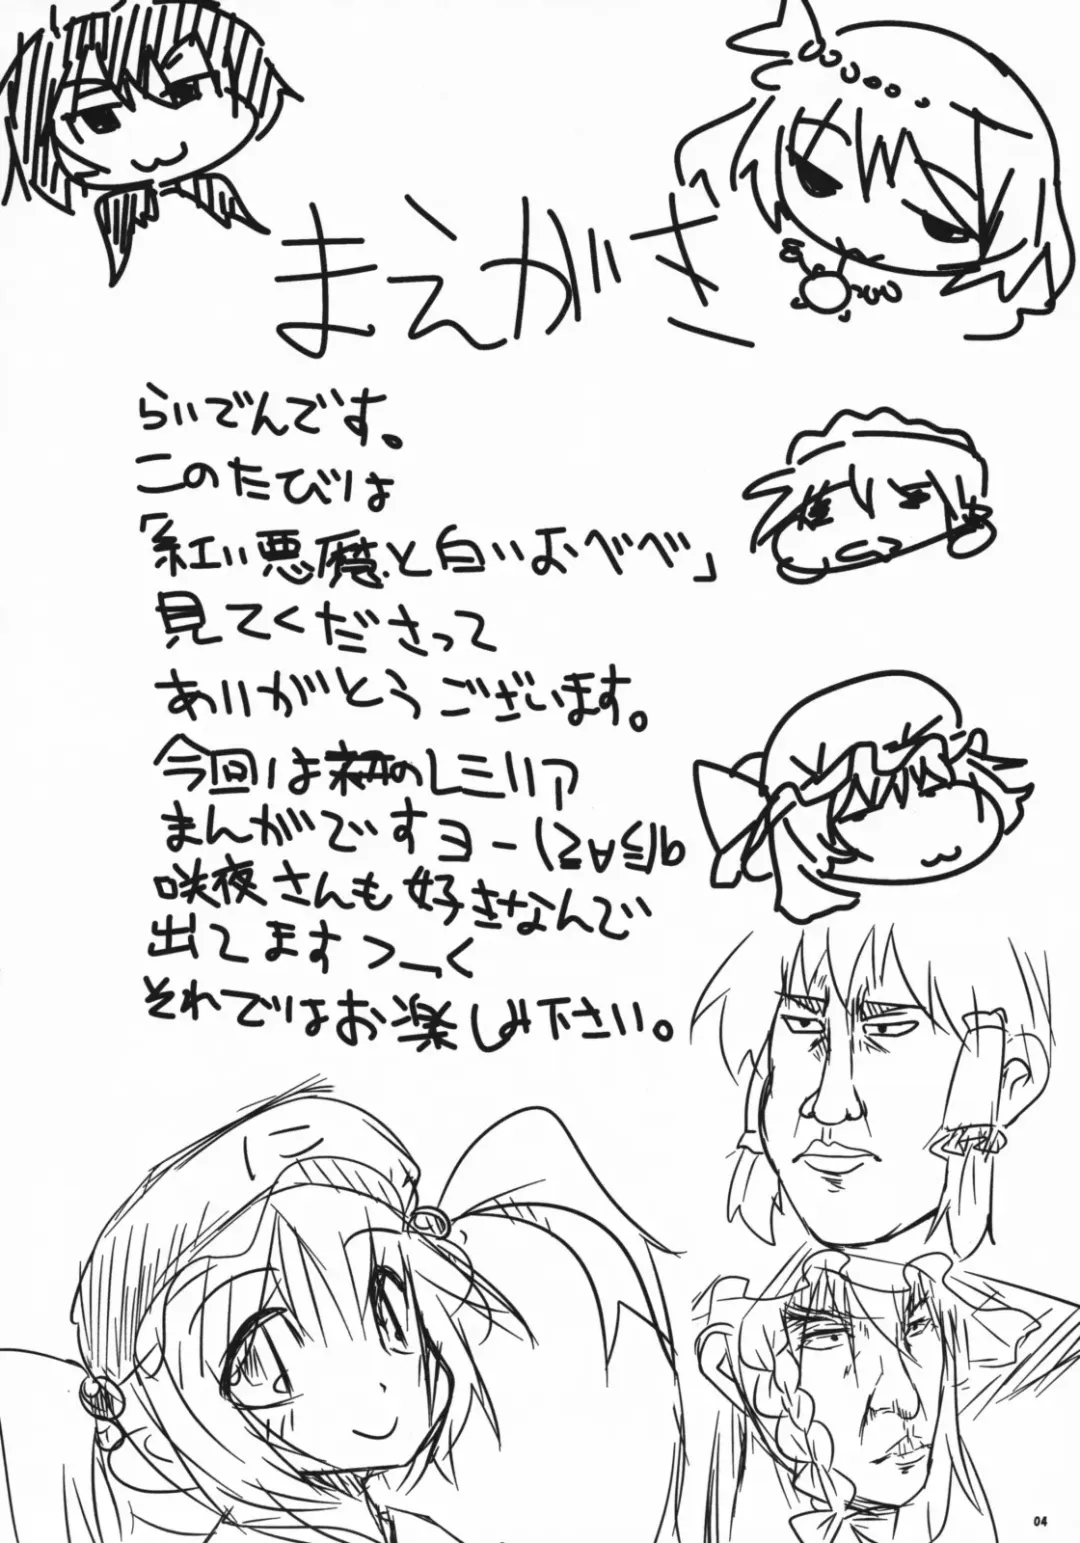 まえがき
らいでんです。
このたびは
「紅い悪魔と白いおべべ」
見てくださって
ありがとうございます。
今回は初のレミリア
まんがですヨー(≧∀≦)b
咲夜さんも好きなんで
出てますつーく
それではお楽しみ下さい。
04